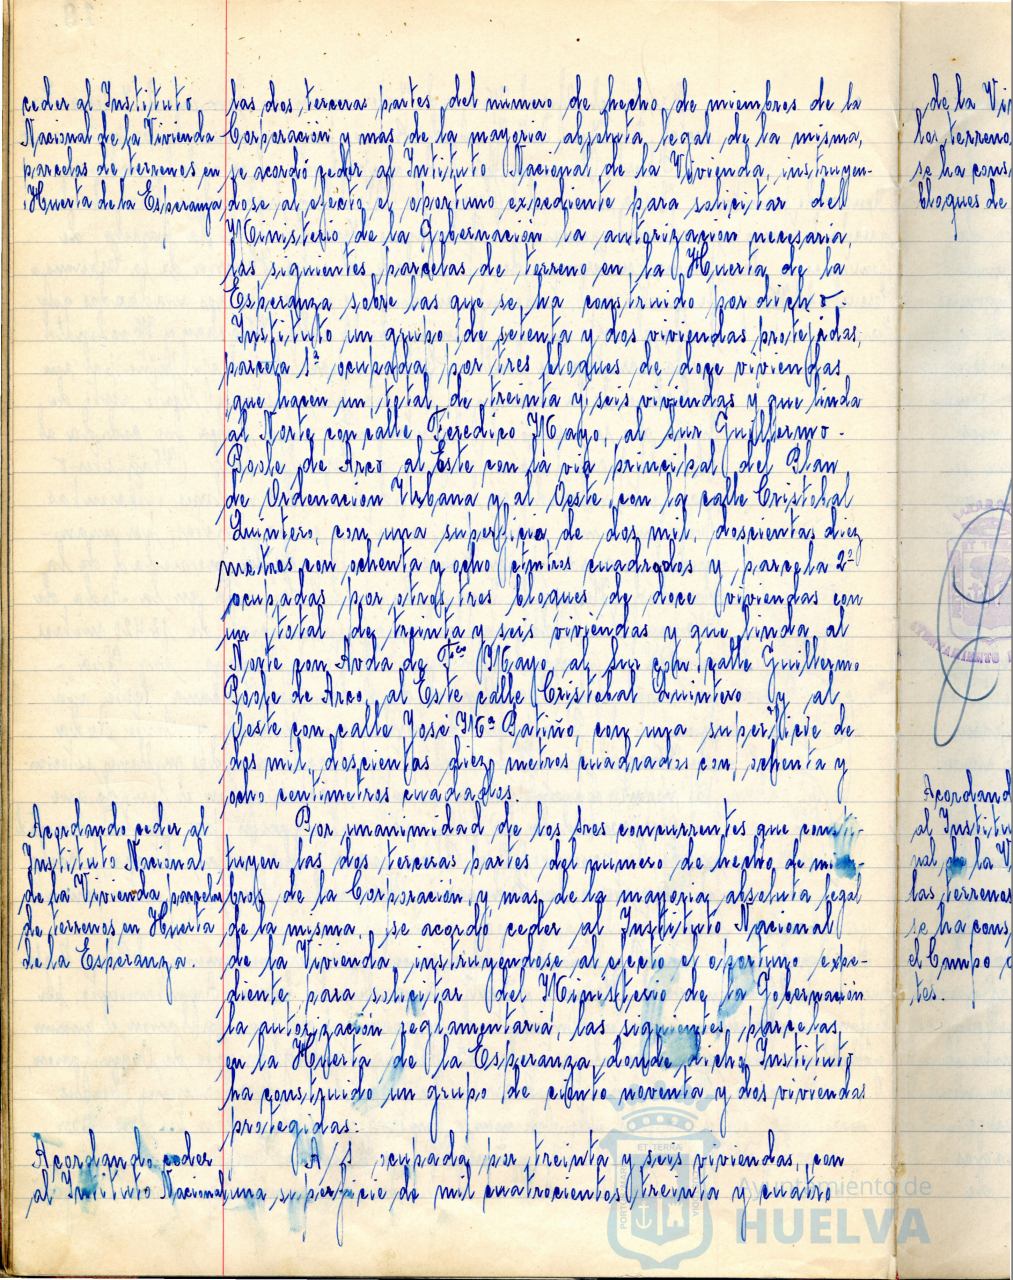 ceder al Instituto
Nacional de la Vivienda
parcelas de terrenos en
Huerta de la Esperanza
las dos terceras partes del número de hecho de miembros de la
Corporación y mas de la mayoria absoluta legal de la misma,
se acordó ceder al Intituto Nacional de la Vivienda, instruyen-
dose al efecto el oportuno expediente para solicitar del
Ministerio de la Gobernación la autorización necesaria,
las siguientes parcelas de terreno en la Huerta de la
Esperanza sobre las que se ha construido por dicho
Instituto un grupo de setenta y dos viviendas protegidas;
parcela 1ª ocupada por tres bloques de doce viviendas
que hacen un total de treinta y seis viviendas y que linda
al Norte con calle Feredico Mayo, al Sur Guillermo
Poole de Arco al Este con la via principal del Plan
de Ordenacion Urbana y al Oeste con la calle Cristobal
Quintero, con una superficie de dos mil doscientas diez
metros con ochenta y ocho ctmtros cuadrados y parcela 2ª
ocupadas por otros tres bloques de doce viviendas con
un total de treinta y seis viviendas y que linda al
Norte con Avda de Fco Mayo, al Sur con calle Guillermo
Poole de Arco, al Este calle Cristobal Quintero y al
Oeste con calle José Mª Patiño, con una superficie de
dos mil doscientas diez metros cuadrados con ochenta y
ocho centimetros cuadados
Acordando ceder al
Instituto Nacional
de la Vivienda parcelas
de terrenos en Huerta
de la Esperanza.
Por unanimidad de los Sres concurrentes que consti-
tuyen las dos terceras partes del numero de hecho de miem-
bros de la Corporación y mas de la mayoria absoluta legal
de la misma, se acordó ceder al Instituto Nacional
de la Vivienda, instruyendose al efecto el oportuno expe-
diente para solicitar del Ministerio de la Gobernación
la autorización reglamentaria, las siguientes parcelas
en la Huerta de la Esperanza, donde dicho Instituto
ha construido un grupo de ciento noventa y dos viviendas
protegidas:
Acordando ceder
al Instituto Nacional
A/S ocupada por treinta y seis viviendas, con
una superficie de mil cuatrocientos treinta y cuatro
de la Vi
los terreno
se ha cons
bloques de
Acordand
al Institu
nal de la V
las terrenos
se ha cons
el Grupo
tes.
Ayuntamiento de
HUELVA